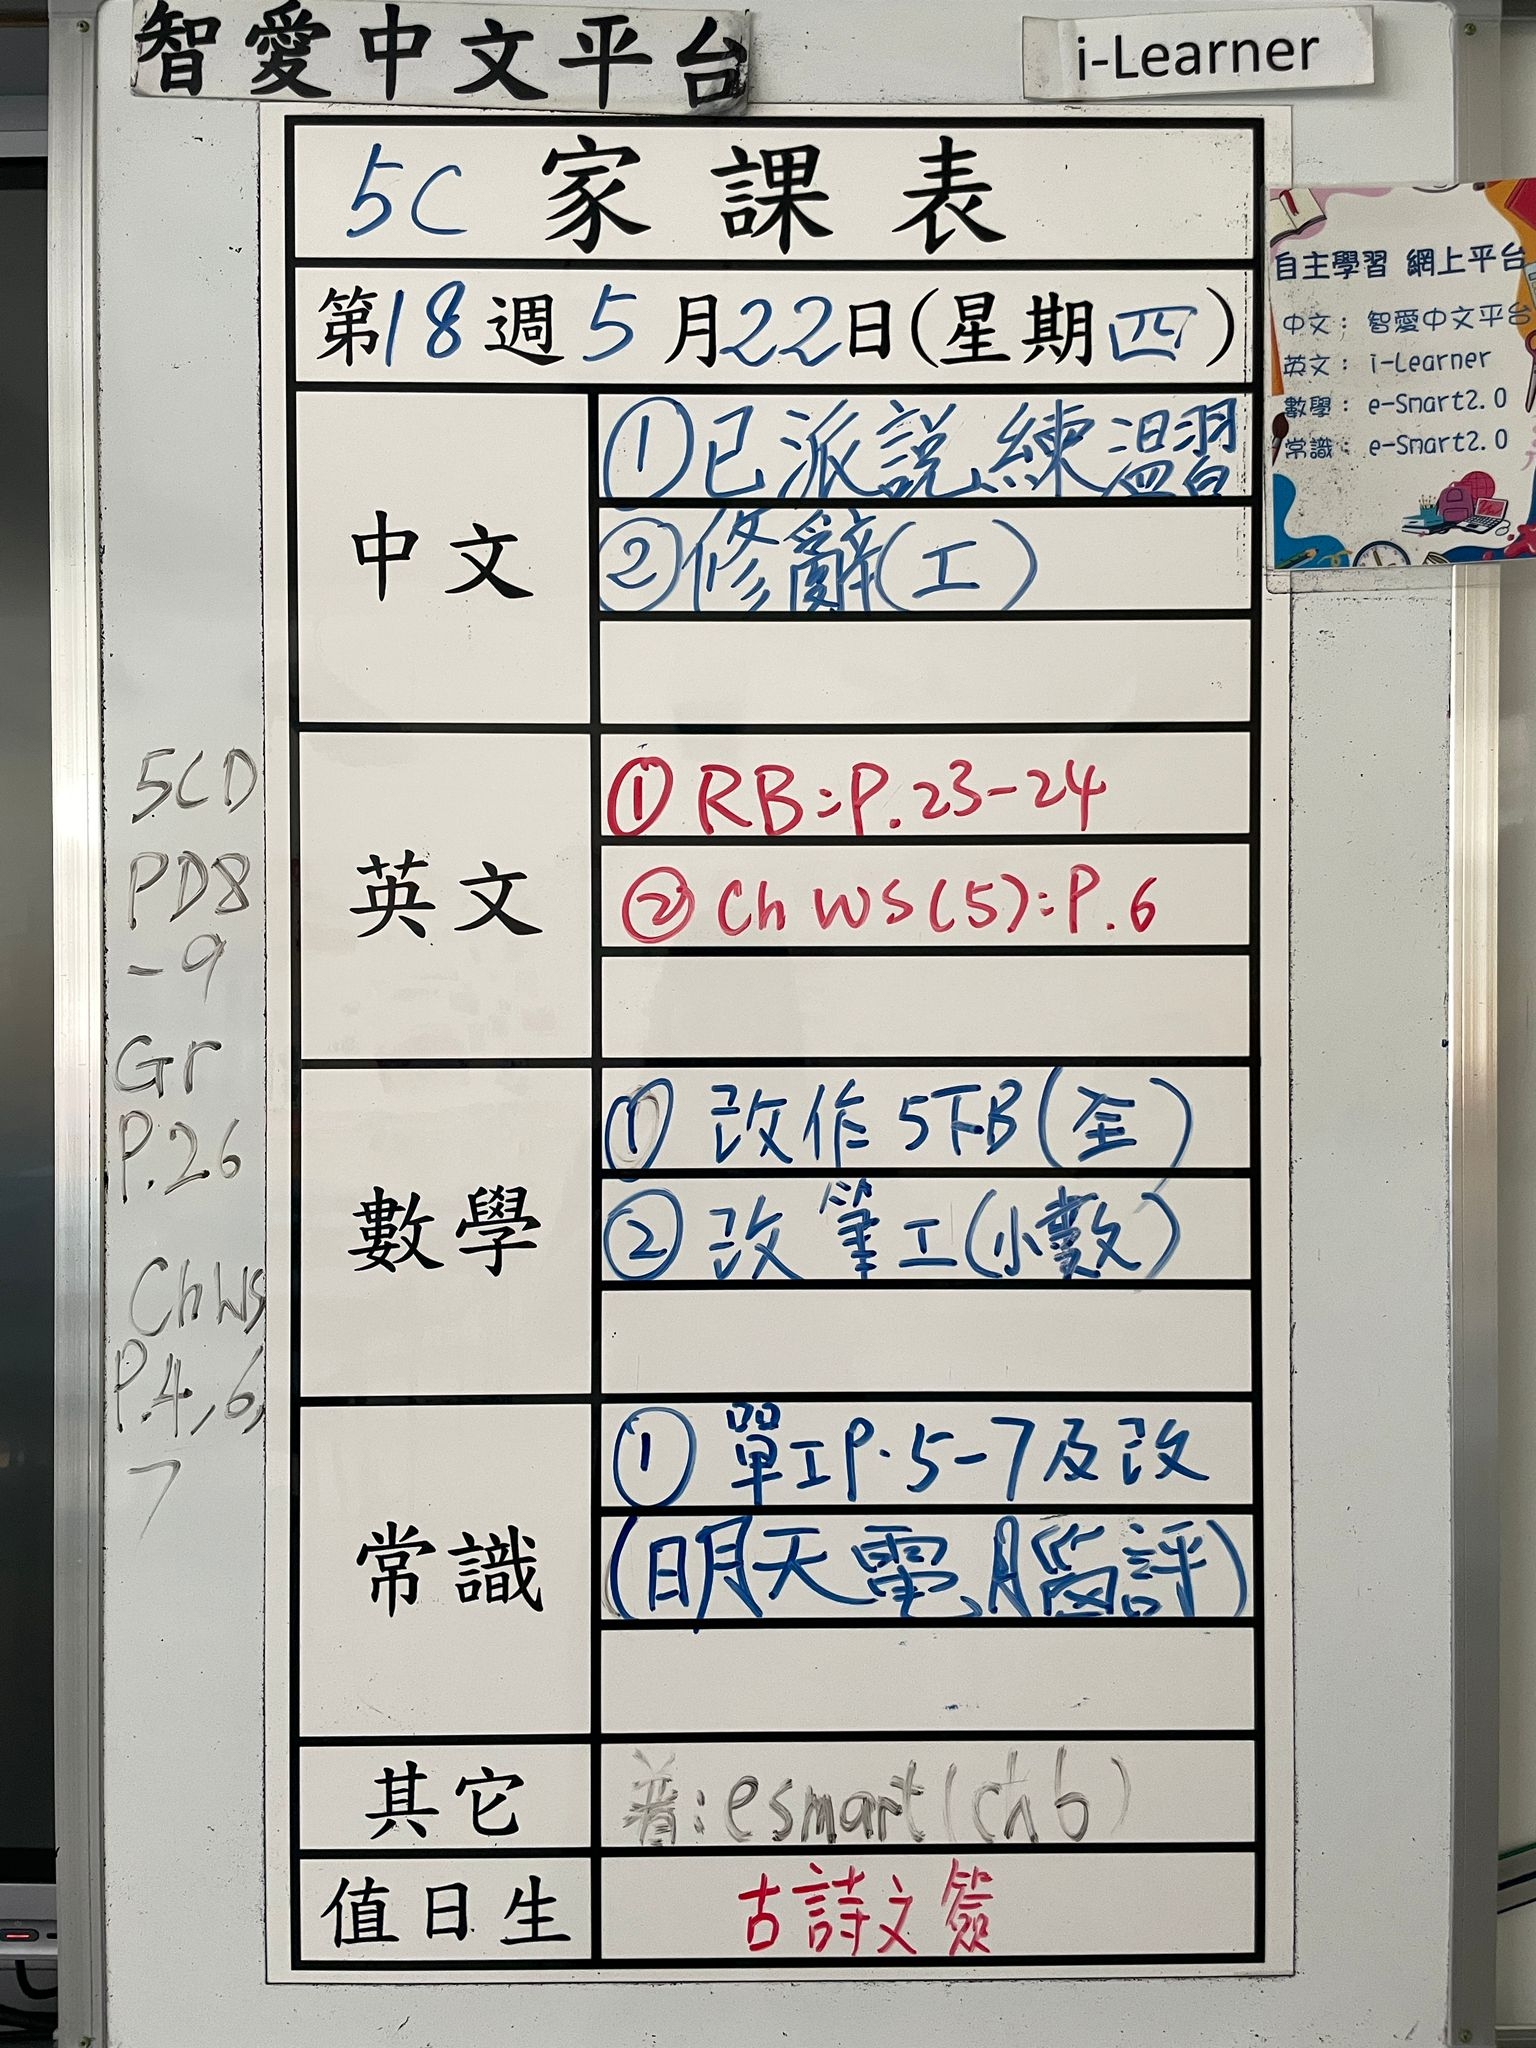 智愛中文平台
i-Learner
5C 家課表
第18週5月22日(星期四)
中文
①已派說練溫習
②修辭(工)
英文
① RB:P.23-24
② Ch WS(5):P.6
數學
① 改作5下B(全)
② 改筆工(小數)
常識
① 單工P.5-7及改
(明天電腦評)
其它
普:esmart(ch6)
值日生
古詩文簽
5CD
PD8
-9
Gr
P.26
Ch WS
P.4,6,
7
自主學習 網上平台
中文: 智愛中文平台
英文: i-Learner
數學: e-Smart2.0
常識: e-Smart2.0